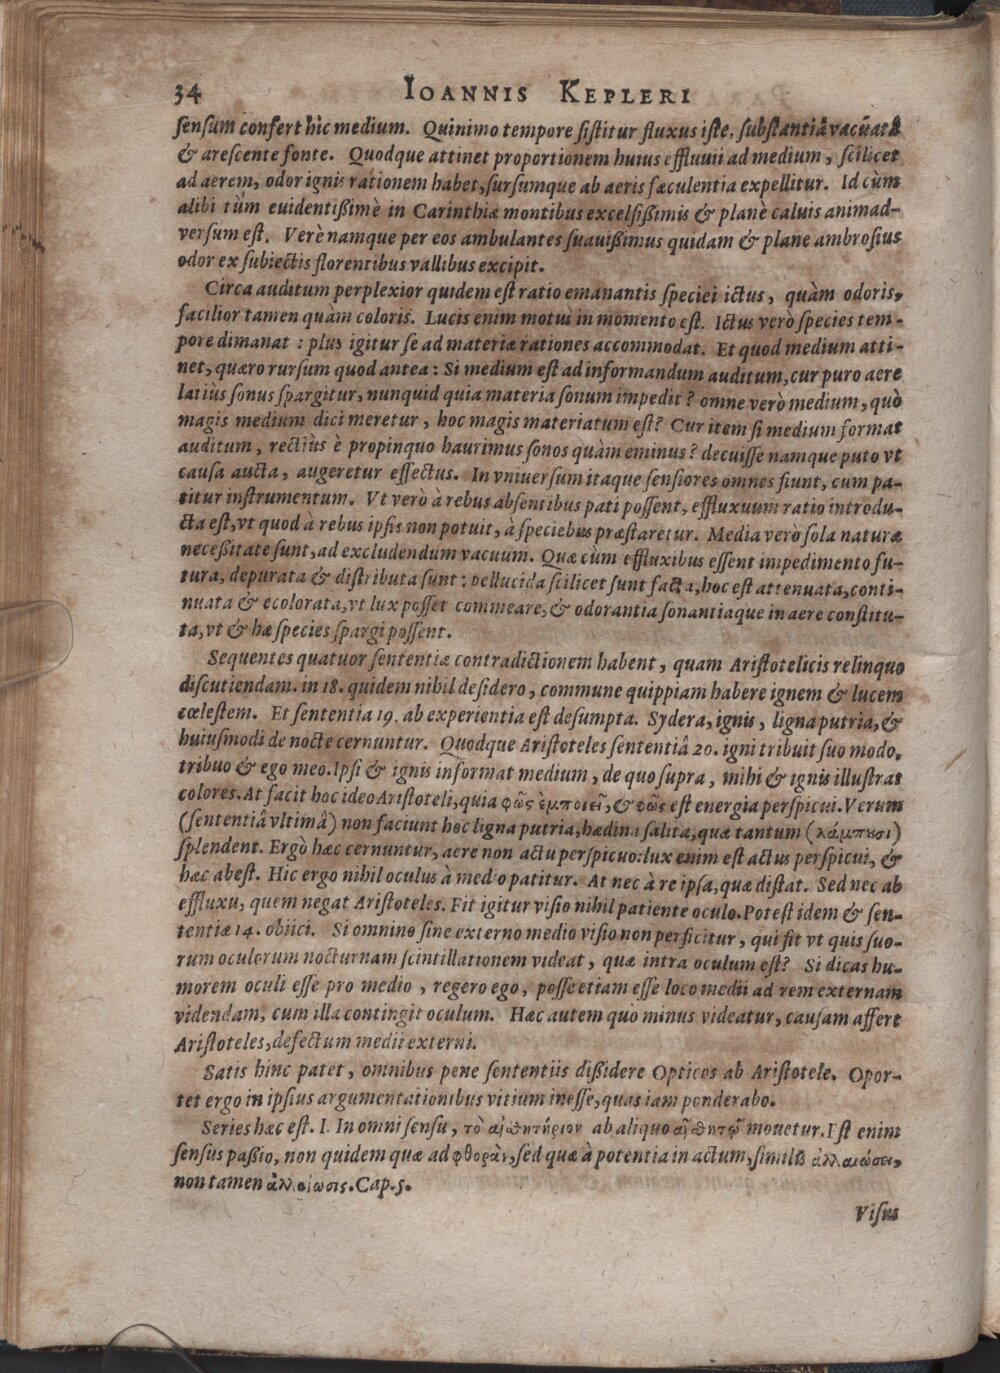 34 IOANNIS KEPLERI
ſenſum confert hic medium. Quinimo tempore ſiſtitur fluxus iſte, ſubſtantiâ vacuatâ
& areſcente fonte. Quodque attinet proportionem huius effluuii ad medium, ſcilicet
ad aerem, odor ignis rationem habet, ſurſumque ab aeris fæculentia expellitur. Id cùm
alibi tùm euidentißimè in Carinthiæ montibus excelſißimis & planè caluis animad-
verſum eſt. Verè namque per eos ambulantes ſuauißimus quidam & plane ambroſius
odor ex ſubiectis florentibus vallibus excipit.
Circa auditum perplexior quidem eſt ratio emanantis ſpeciei ictus, quàm odoris,
facilior tamen quàm coloris. Lucis enim motus in momento eſt. Ictus verò ſpecies tem-
pore dimanat : plus igitur ſe ad materiæ rationes accommodat. Et quod medium atti-
net, quæro rurſum quod antea: Si medium eſt ad informandum auditum, cur puro aere
latius ſonus ſpargitur, nunquid quia materia ſonum impedit ? omne verò medium, quò
magis medium dici meretur, hoc magis materiatum eſt? Cur item ſi medium format
auditum, rectiùs è propinquo haurimus ſonos quàm eminus? decuiſſe namque puto vt
cauſa aucta, augeretur effectus. In vniuerſum itaque ſenſiores omnes fiunt, cum pa-
titur inſtrumentum. Vt verò à rebus abſentibus pati poſſent, effluxuum ratio introdu-
cta eſt, vt quod à rebus ipſis non potuit, à ſpeciebus præſtaretur. Media verò ſola naturæ
neceßitate ſunt, ad excludendum vacuum. Quæ cùm effluxibus eſſent impedimento fu-
tura, depurata & diſtributa ſunt: pellucida ſcilicet ſunt facta, hoc eſt attenuata, conti-
nuata & ecolorata, vt lux poſſet commeare, & odorantia ſonantiaque in aere conſtitu-
ta, vt & hæ ſpecies ſpargi poſſent.
Sequentes quatuor ſententiæ contradictionem habent, quam Ariſtotelicis relinquo
diſcutiendam. in 18. quidem nihil deſidero, commune quippiam habere ignem & lucem
cœleſtem. Et ſententia 19. ab experientia eſt deſumpta. Sydera, ignis, ligna putria, &
huiuſmodi de nocte cernuntur. Quodque Ariſtoteles ſententiâ 20. igni tribuit ſuo modo,
tribuo & ego meo. Ipſi & ignis informat medium, de quo ſupra, mihi & ignis illuſtrat
colores. At facit hoc ideo Ariſtoteli, quia φῶς ἐμποιεῖ, & φῶς eſt energia perſpicui. Verum
(ſententiâ vltimâ) non faciunt hoc ligna putria, hædina ſalita, quæ tantum (λάμπουσι)
ſplendent. Ergò hæc cernuntur, aere non actu perſpicuo: lux enim eſt actus perſpicui, &
hæc abeſt. Hic ergo nihil oculus à medio patitur. At nec à re ipſa, quæ diſtat. Sed nec ab
effluxu, quem negat Ariſtoteles. Fit igitur viſio nihil patiente oculo. Poteſt idem & ſen-
tentiæ 14. obiici. Si omnino ſine externo medio viſio non perficitur, qui fit vt quis ſuo-
rum oculorum nocturnam ſcintillationem videat, quæ intra oculum eſt? Si dicas hu-
morem oculi eſſe pro medio, regero ego, poſſe etiam eſſe loco medii ad rem externam
videndam, cum illa contingit oculum. Hæc autem quò minus videatur, cauſam affert
Ariſtoteles, defectum medii externi.
Satis hinc patet, omnibus pene ſententiis dißidere Opticos ab Ariſtotele. Opor-
tet ergo in ipſius argumentationibus vitium ineſſe, quas iam ponderabo.
Series hæc eſt. I. In omni ſenſu, τὸ αἰσθητήριον ab aliquo αἰσθητῷ mouetur. Eſt enim
ſenſus paßio, non quidem quæ ad φθοράν, ſed quæ à potentia in actum, ſimilis ἀλλοιώσει,
non tamen ἀλλοίωσις. Cap. 5.
Viſus